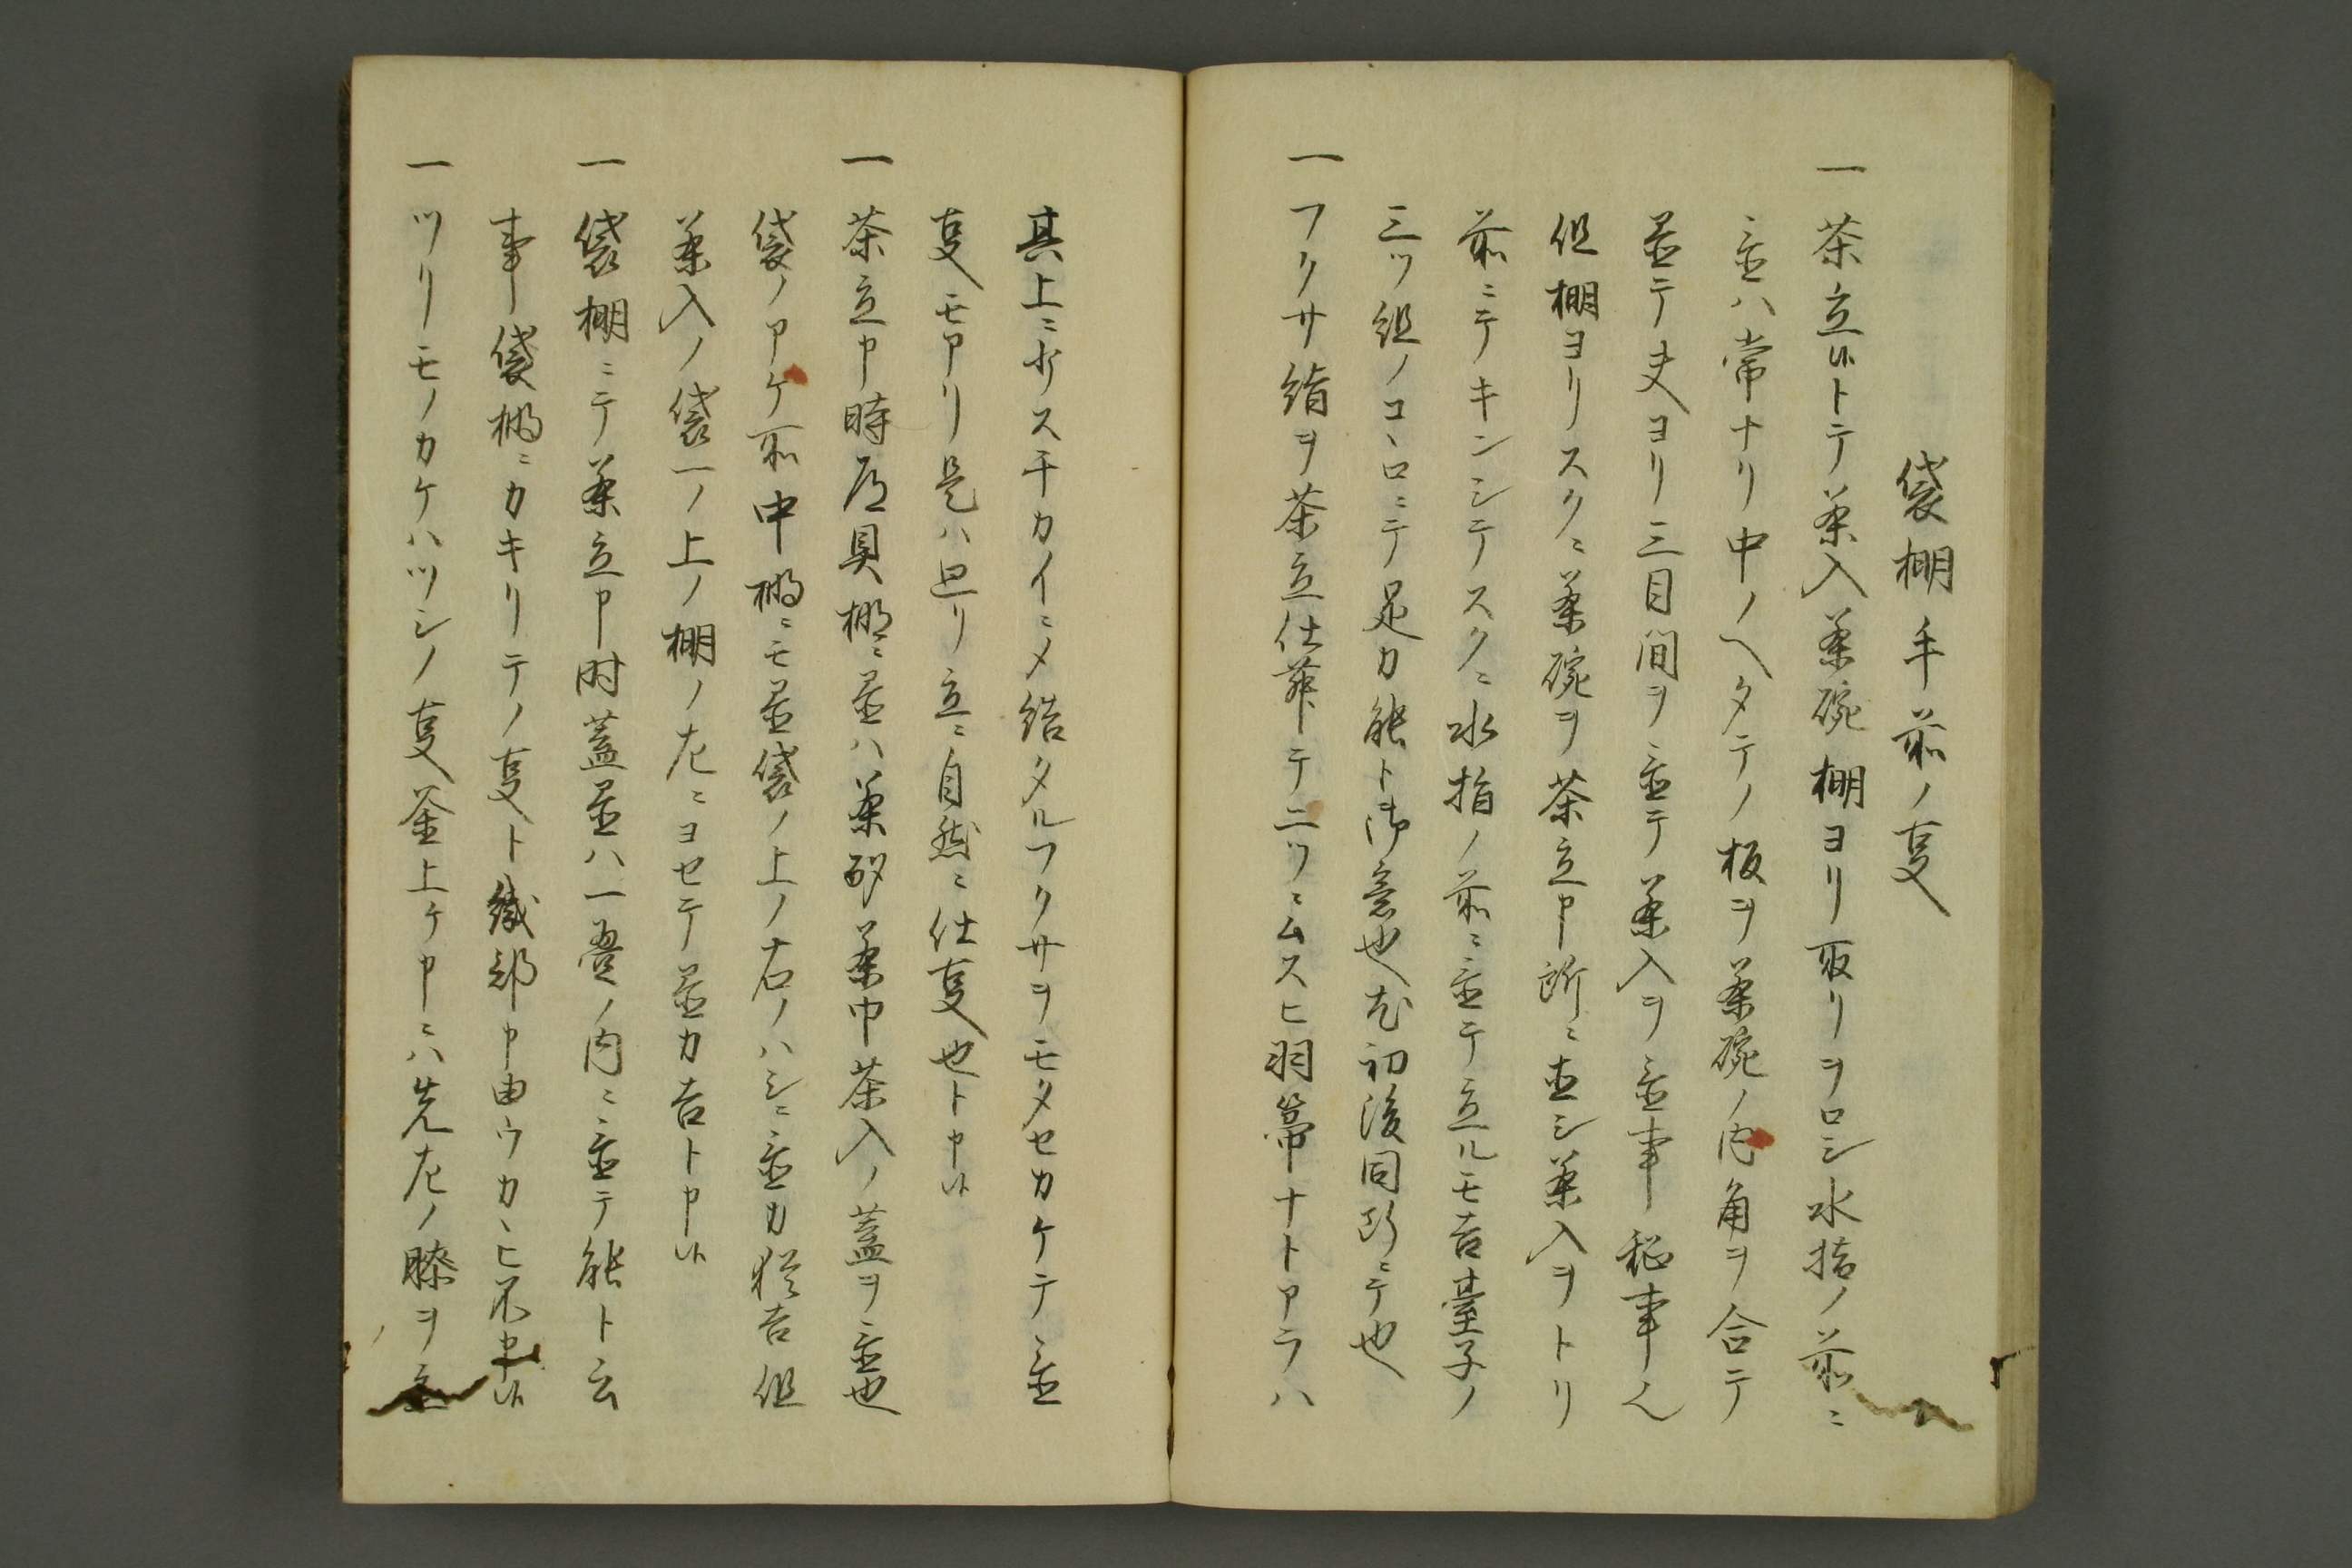 袋棚手前ノ叓
一 茶立候トテ茶入茶碗棚ヨリ取リヲロシ水指ノ前ニ
置ハ常ナリ中ノヘタテノ板ヲ茶碗ノ内角ヲ合テ
置テ夫ヨリ三目間ヲ置テ茶入ヲ置事秘事也
但棚ヨリスクニ茶碗ヲ茶立申所ニ直シ茶入ヲトリ
前ニテキンシテスクニ水指ノ前ニ置テ立ルモ吉臺子ノ
三ツ組ノコヽロニテ是カ能ト御意也尤初後同断ニテ也
一 フクサ絹ヲ茶立仕舞テ二ツニムスヒ羽箒ナトアラハ
其上ニ水スチカイニメ結タルフクサヲモタセカケテ置
叓モアリ是ハ囲リ立ニ自然ニ仕叓也ト申候
一 茶立申時道具棚ニ置ハ茶碗茶巾茶入ノ蓋ヲ置也
袋ノアケ前中棚ニモ置袋ノ上ノ右ノハシニ置カ猶吉但
茶入ノ袋一ノ上ノ棚ノ左ニヨセテ置カ吉ト申候
一 袋棚ニテ茶立申时蓋置ハ一畳ノ内ニ置テ能ト云
事袋棚ニカキリテノ叓ト織部申由ウカヽヒ不申候
一 ツリモノカケハツシノ叓釜上ケ申ニハ先左ノ膝ヲ立